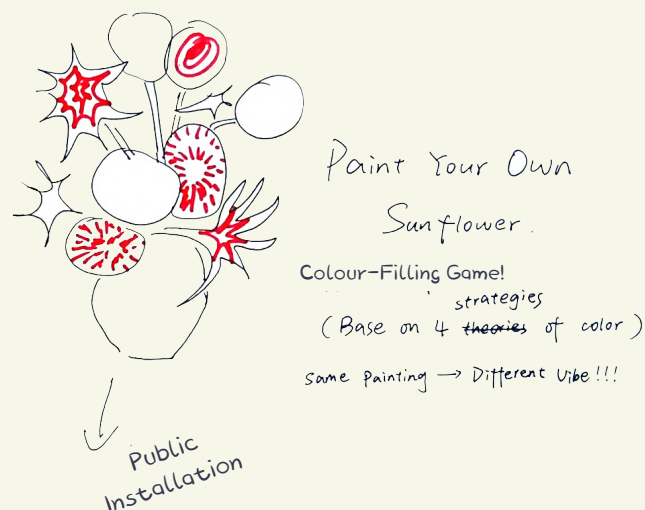 Paint Your Own
Sunflower.
Colour-Filling Game!
strategies
(Base on 4 theories of color)
Same Painting → Different Vibe!!!
Public
Installation